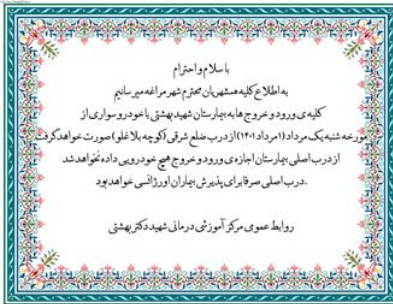 با سلام و احترام
به اطلاع کلیه همشهریان محترم شهر مراغه میرسانیم
کلیه ی ورود و خروج ها به بیمارستان شهید بهشتی با خودرو سواری از
مورخه شنبه یک مرداد (۱ مرداد ۱۴۰۱) از درب ضلع شرقی (کوچه بلاغلو) صورت خواهد گرفت
از درب اصلی بیمارستان اجازه ی ورود و خروج هیچ خودرویی داده نخواهد شد
.درب اصلی صرفا برای پذیرش بیماران اورژانسی خواهد بود
روابط عمومی مرکز آموزشی درمانی شهید دکتر بهشتی